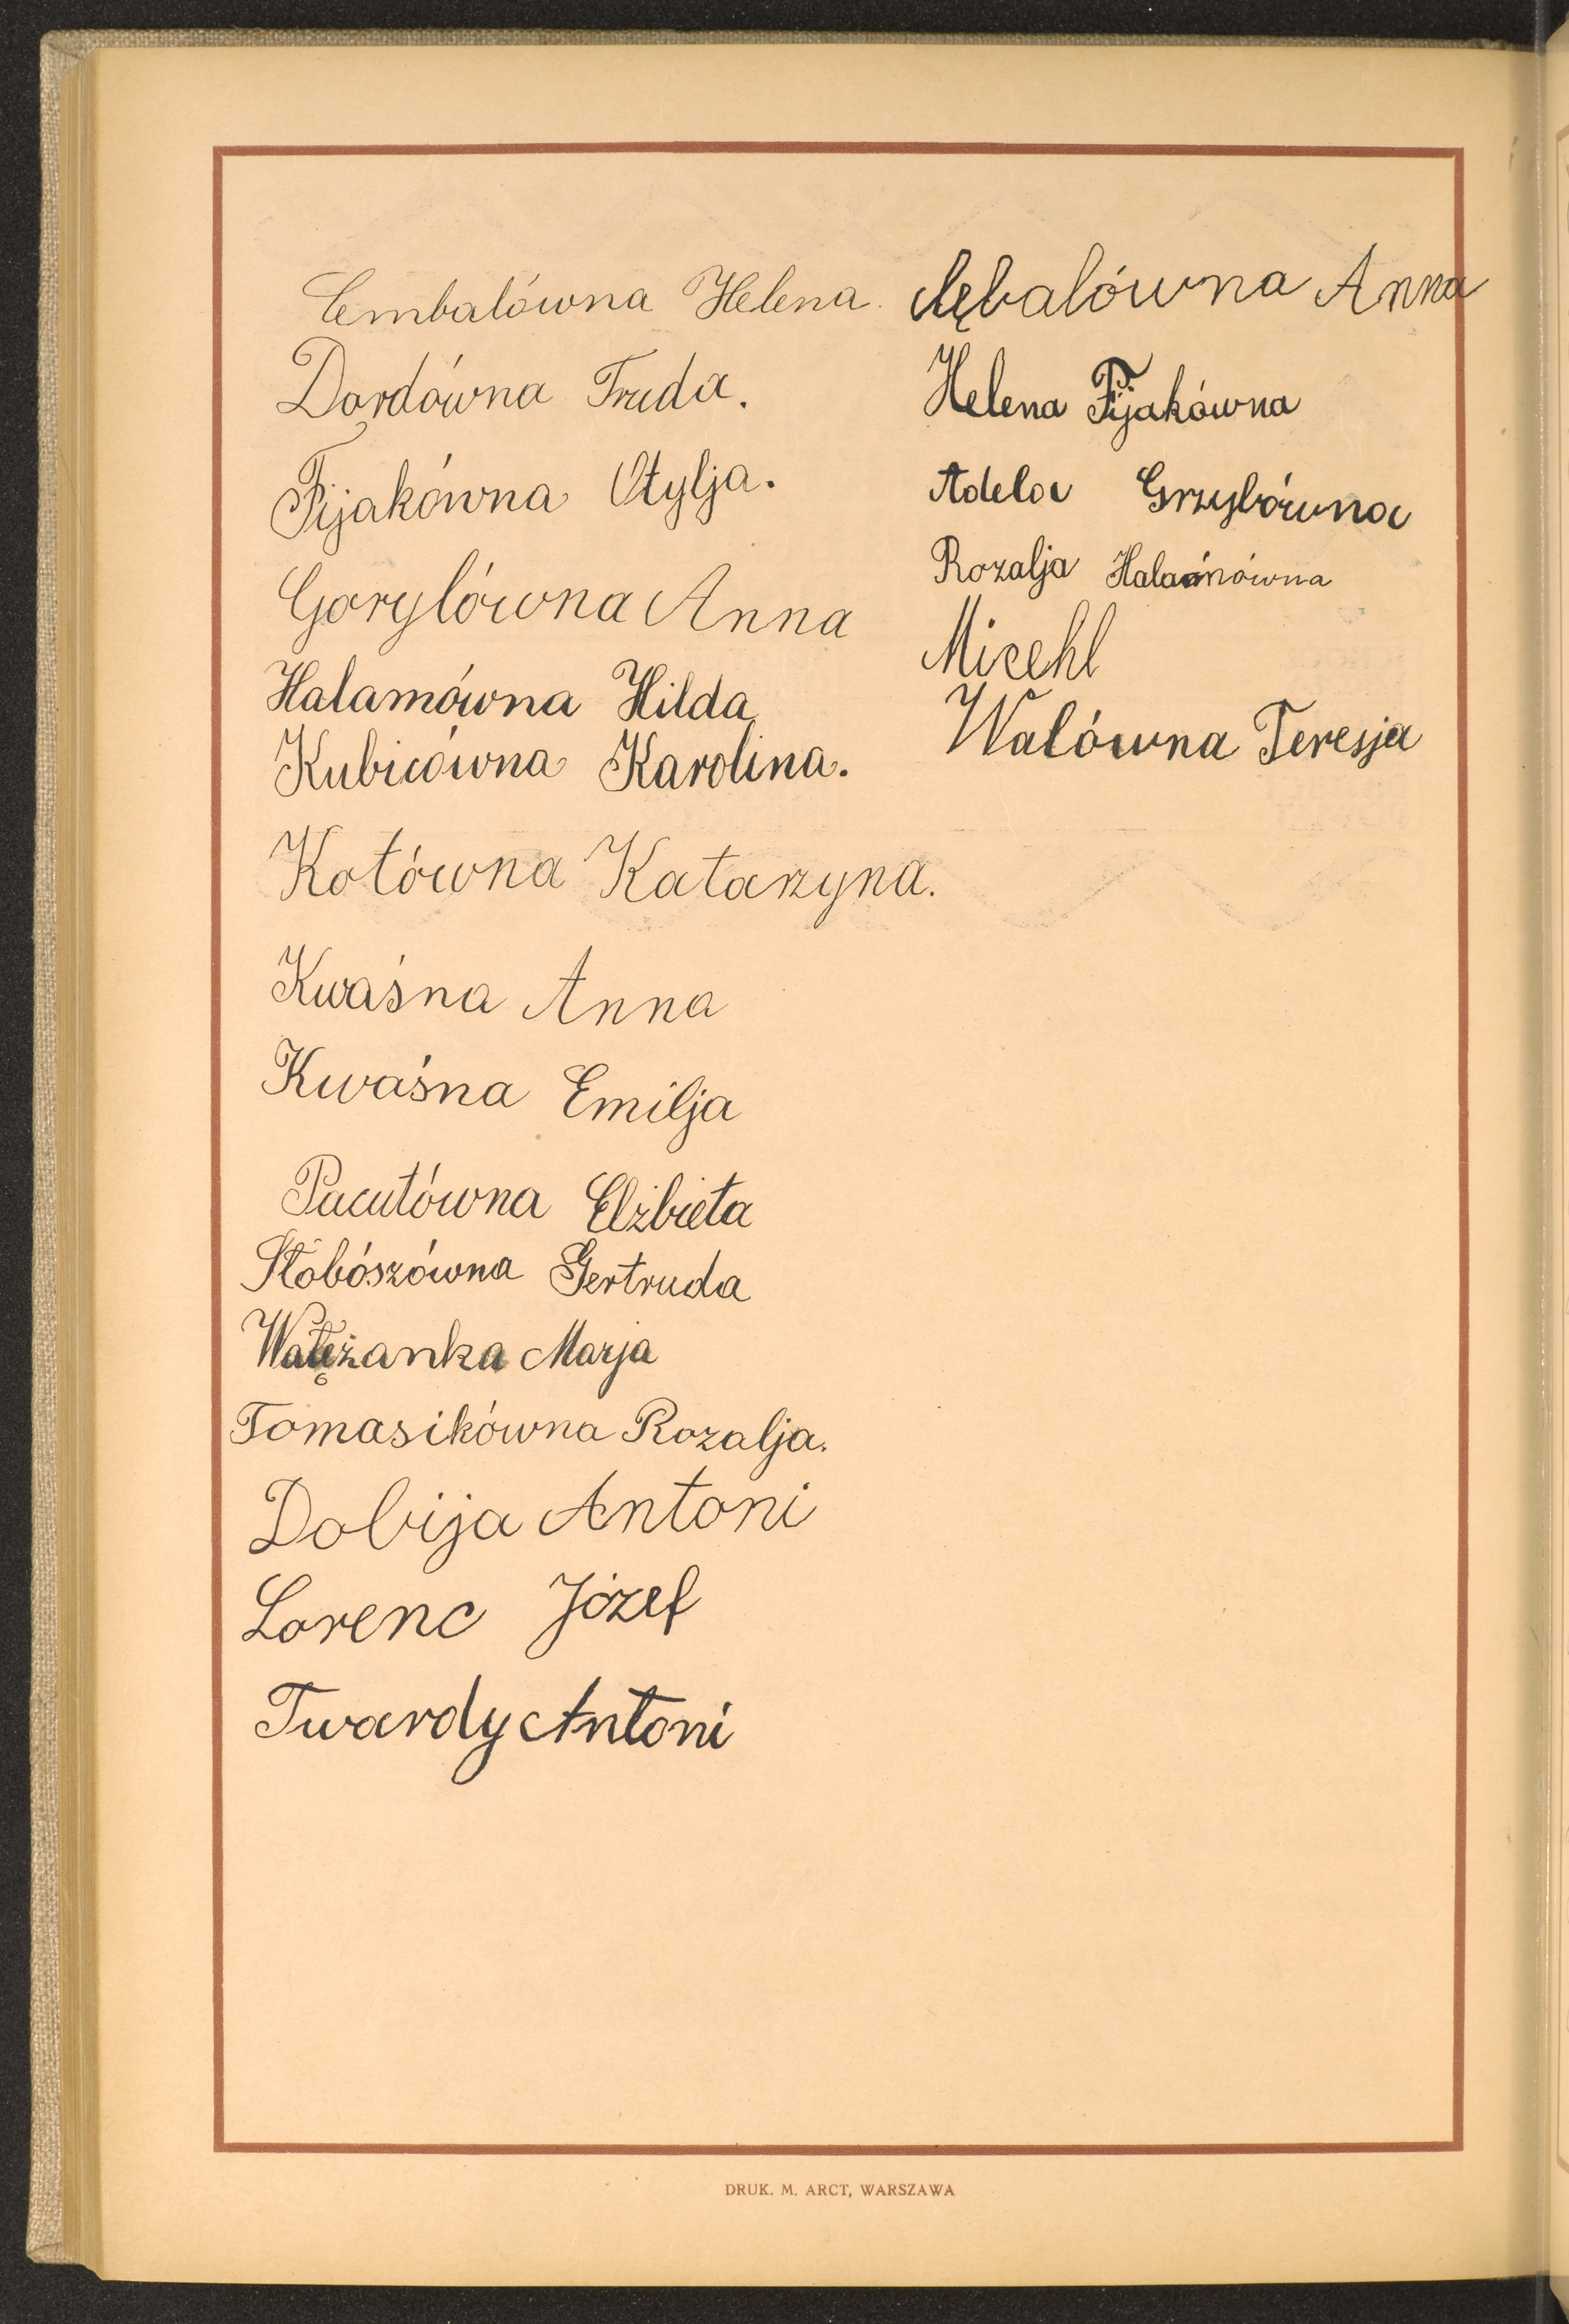 Cembalówna Helena.
Dordówna Truda.
Fijakówna Otylja.
Gorylówna Anna
Halamówna Hilda
Kubicówna Karolina.
Kotówna Katarzyna.
Kwaśna Anna
Kwaśna Emilja
Pacutówna Elżbieta
Słobószówna Gertruda
Walężanka Marja
Tomasikówna Rozalja.
Dobija Antoni
Lorenc Józef
Twardy Antoni
Cębalówna Anna
Helena Fijakówna
Adela Grzybówna
Rozalja Halamówna
Micehl
Walówna Teresja
DRUK. M. ARCT, WARSZAWA